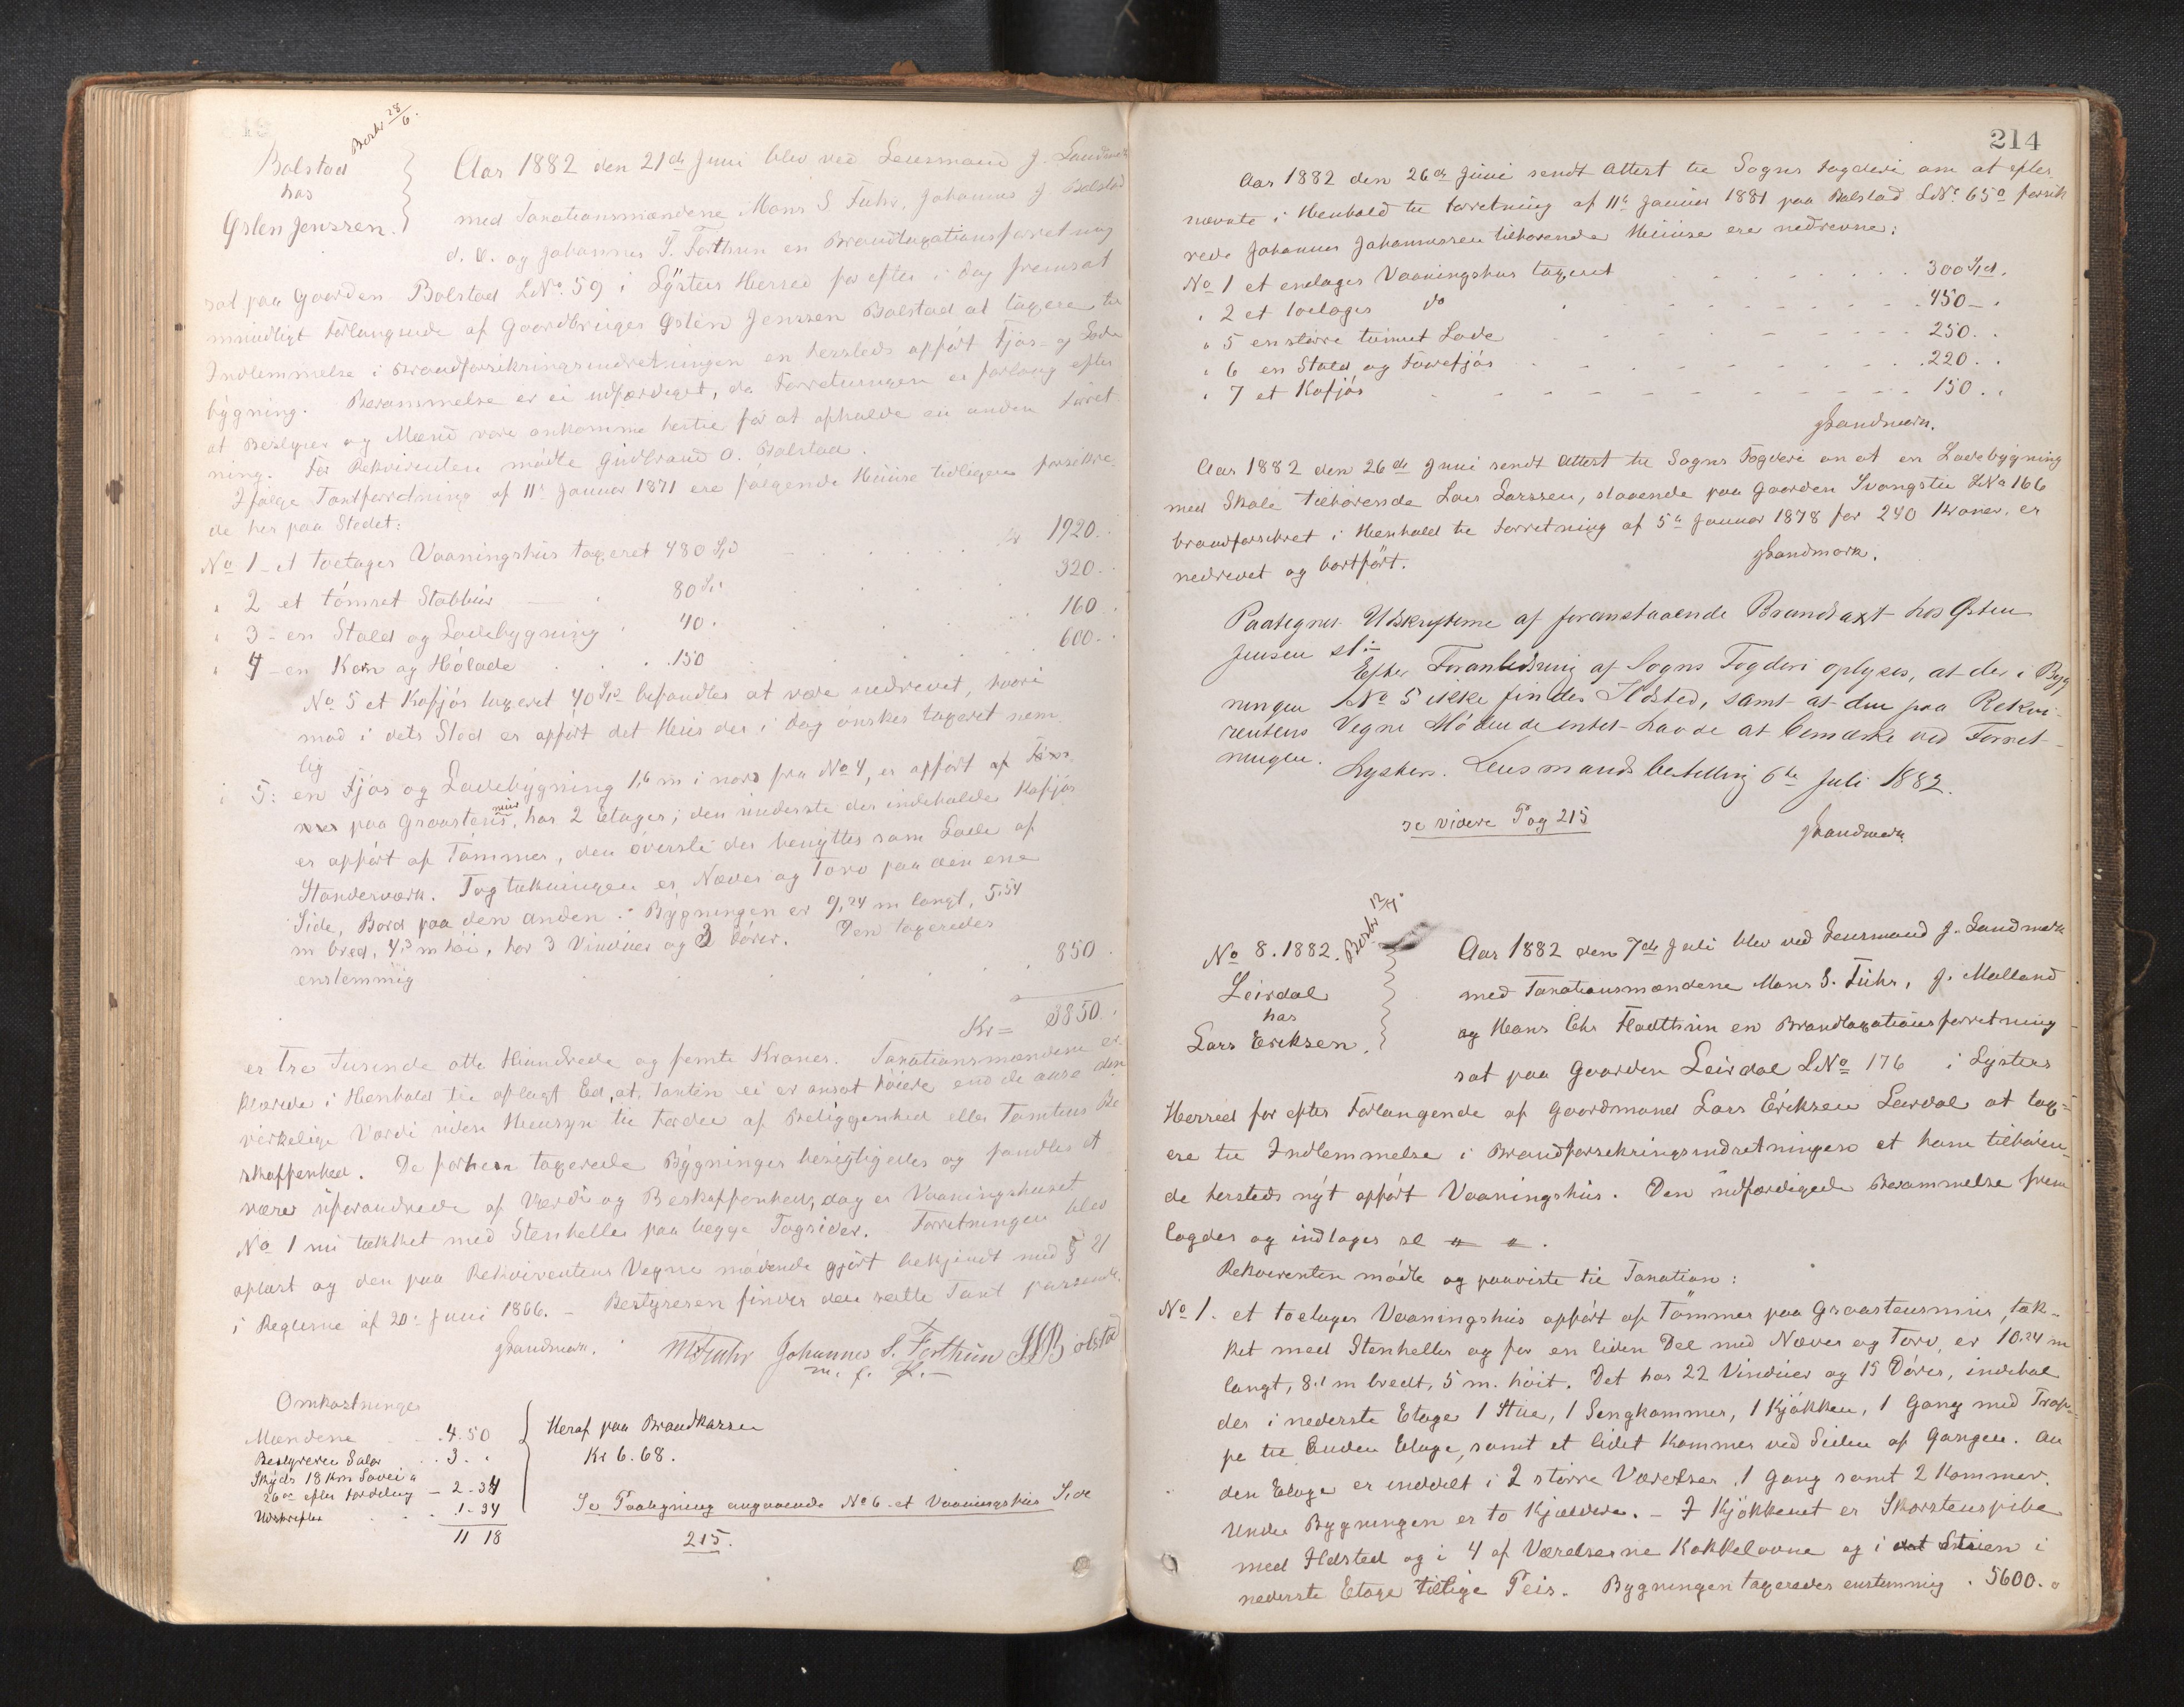 Beskr 28/6.
Bolstad
hos
Østen Jenssen.
Aar 1882 den 21de Juni blev ved Lensmand J. Landmark
med Taxationsmændene Mons S Fuhr, Johannes J Bolstad
d. e. og Johannes S. Forthun en Brandtaxationsforretning
sat paa Gaarden Bolstad LNo. 59 i Lysters Herred for efter i Dag fremsat
mundtligt Forlangende af Gaardbruger Østen Jenssen Bolstad at taxere til
Indlemmelse i Brandforsikringsindretningen en hersteds opført Fjøs- og Lade
bygning. Berammelse er ei udfærdiget, da Forretningen er forlangt efter
at Bestyrer og Mænd vare ankomne hertil for at afholde en anden Forret
ning. For Rekvirenten mødte Gudbrand O. Bolstad.
Ifølge Taxtforretning af 11te Januar 1871 ere følgende Huuse tidligere forsikre
de her paa Stedet:
No 1 et toetages Vaaningshus taxeret 480 Spd 1920.
" 2 et tømret Stabbur 80 320.
" 3 en Stald og Ladebygning 40. 160
" 4 en Korn og Hølade 150 600.
No 5 et Kofjøs taxeret 40 Spd befandtes at være nedrevet, hvori
mod i dets Sted er opført det Huus der i dag ønskes taxeret nem
lig
5: en Fjøs og Ladebygning 1,6 m i nord fra No 4, er opført af
paa Graastensmur, har 2 Etager; den underste der indeholder Kofjøs
er opført af Tømmer, den øverste der benyttes som Lade af
Standerværk. Tagtækningen er Næver og Torv paa den ene
Side, Bord paa den anden. Bygningen er 9,24 m langt, 5,54
m bred, 4,3 m høi, har 3 Vinduer og 3 Dører. Den taxeredes
enstemmig 850
Kr = 3850.
er Tre Tusinde otte Hundrede og femti Kroner. Taxationsmændene er
klærede i Henhold til aflagt Ed, at Taxten ei er ansat høiere end de anse den
virkelige Værdi uden Hensyn til Fordele af Beliggenhed eller Tomtens Be
skaffenhed. De forhen taxerede Bygninger besigtigedes og fandtes at
være uforandrede af Værdi og Beskaffenhed, dog er Vaaningshuset
No 1 nu tækket med Stenheller paa begge Tagsider. Forretningen blev
oplæst og den paa Rekvirentens Vegne mødende gjort bekjendt med § 21
i Reglerne af 20de Juni 1866. - Bestyreren finder den satte Taxt passende.
JLandmark. MSFuhr Johannes S. Forthun JJBolstad
m. f. P.
Omkostninger
Mændene 4.50
Bestyreren Salær 3.
Skyds 18 Km
efter Fordeling 2-34
Udskrifter 1-34
11 18
Heraf paa Brandkassen
Kr 6.68.
Se Paategning angaaende No 6 et Vaaningshus Side
215.
214
Aar 1882 den 26de Juni sendt Attest til Sogns Fogderi om at efter
nævnte i Henhold til Forretning af 11te Januar 1881 paa Bolstad LNo. 65a forsik
rede Johannes Johannessen tilhørende Huuse ere nedrevne:
No 1 et enetages Vaaningshus taxeret 300 Spd.
" 2 et toetages do 450 -
" 5 en større tømret Lade 250.
" 6 en Stald og Fourefjøs 220.
" 7 et Kofjøs 150.
JLandmark.
Aar 1882 den 26de Juni sendt Attest til Sogns Fogderi om at en Ladebygning
med Skale tilhørende Lars Larssen, staaende paa Gaarden Svangstu LNo 166
brandforsikret i Henhold til Forretning af 5te Januar 1878 for 240 Kroner, er
nedrevet og bortført. JLandmark.
Paategnet Udskrifterne af foranstaaende Brandtaxt hos Østen
Jensen sl:
Efter Foranledning af Sogns Fogderi oplyses, at der i Byg
ningen No 5 ikke findes Ildsted, samt at den paa Rekvi-
rentens Vegne Mødende intet havde at bemærke ved Forret-
ningen. Lysters Lensmandsbestilling 6te Juli 1882.
se videre Pag 215
JLandmark
No 8. 1882. Beskr 12/7.
Leirdal
hos
Lars Eriksen.
Aar 1882 den 7de Juli blev ved Lensmand J. Landmark
med Taxationsmændene Mons S. Fuhr, J. Molland
og Hans Chr Flatthun en Brandtaxationsforretning
sat paa Gaarden Leirdal LNo 176 i Lysters
Herred for efter Forlangende af Gaardmand Lars Eriksen Leirdal at tax-
ere til Indlemmelse i Brandforsikringsindretningen et ham tilhøren-
de hersteds nyt opført Vaaningshus. Den udfærdigede Berammelse frem
lagdes og indtages sl " " .
Rekvirenten mødte og paaviste til Taxation:
No 1. et toetages Vaaningshus opført af Tømmer paa Graastensmur, tæk-
ket med Stenheller og for en liden Del med Næver og Torv, er 10,24 m
langt, 8,1 m bredt, 5 m. høit. Det har 22 Vinduer og 15 Dører, indehol
der i nederste Etage 1 Stue, 1 Sengkammer, 1 Kjøkken, 1 Gang med Trap-
pe til Anden Etage, samt et lidet Kammer ved Siden af Gangen. An
den Etage er inddelt i 2 større Værelser 1 Gang samt 2 Kammer.
Under Bygningen er to Kjældere. - I Kjøkkenet er Skorstenspibe
med Ildsted og i 4 af Værelserne Kakkelovne og i Stuen i
nederste Etage tillige Peis. Bygningen taxeredes enstemmig . 5600.